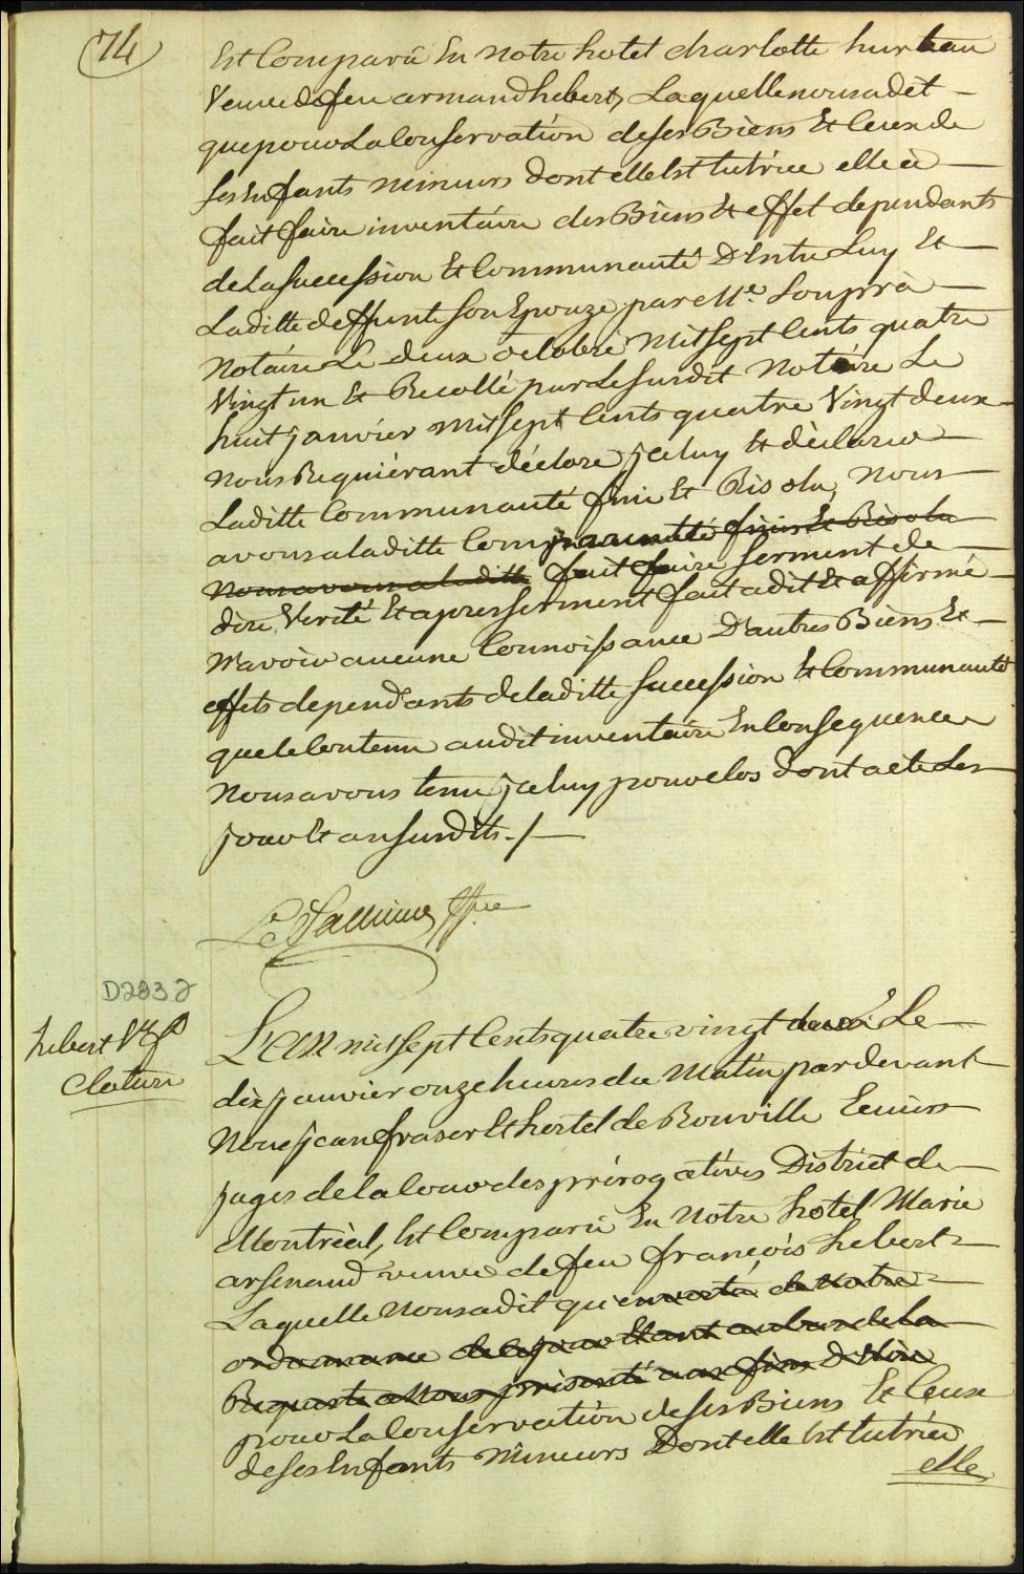 74
Est Comparü En notre hotel charlotte hurteau
Veuve de feu armand hebert, Laquelle nous a dit
que pour La Conservation de ses Biens Et Ceux de
ses Enfants mineurs dont elle Est tutrice elle à
fait faire inventaire des Biens Et effet dependants
de La succession Et Communauté D'Entre Luy Et
Laditte deffunte son Epouze par Me. Soupra
Notaire Le deux octobre mil sept Cents quatre
Vingt un Et Recollé par Le susdit Notaire Le
huit janvier mil sept Cents quatre Vingt deux
Nous Requiérant déclore jceluy Et déclarer
Laditte Communauté finie Et Résolu, Nous
avons a laditte Comparante finie Et Résolu
Nous avons a laditte fait faire serment de
dire Verité Et apres serment fait a dit Et affirmé
N'avoir aucune Connoissance D'autres Biens Et
effets dependants de laditte succession Et Communauté
que le Contenu audit inventaire En Consequence
Nous avons tenu jceluy pour clos dont acte Les
jour Et an susdits ./.
D2832
hebert Ve
Cloture
L'an mil sept Cents quatre vingt deux Le
dix janvier onze heures du Matin par devant
Nous jean fraser Et hertel de Rouville Ecuiers
juges de la Cour des prérogatives District de
Montréal, Est Comparü En Notre hotel Marie
arsenaud veuve de feu françois hebert
Laquelle Nous a dit qu'en vertu de Notre
ordonnance de ce jour Etant au bas de La
Requeste a Nous présenté aux fins
pour La Conservation de ses Biens Et Ceux
de ses Enfants Mineurs Dont elle Est tutrice
elle